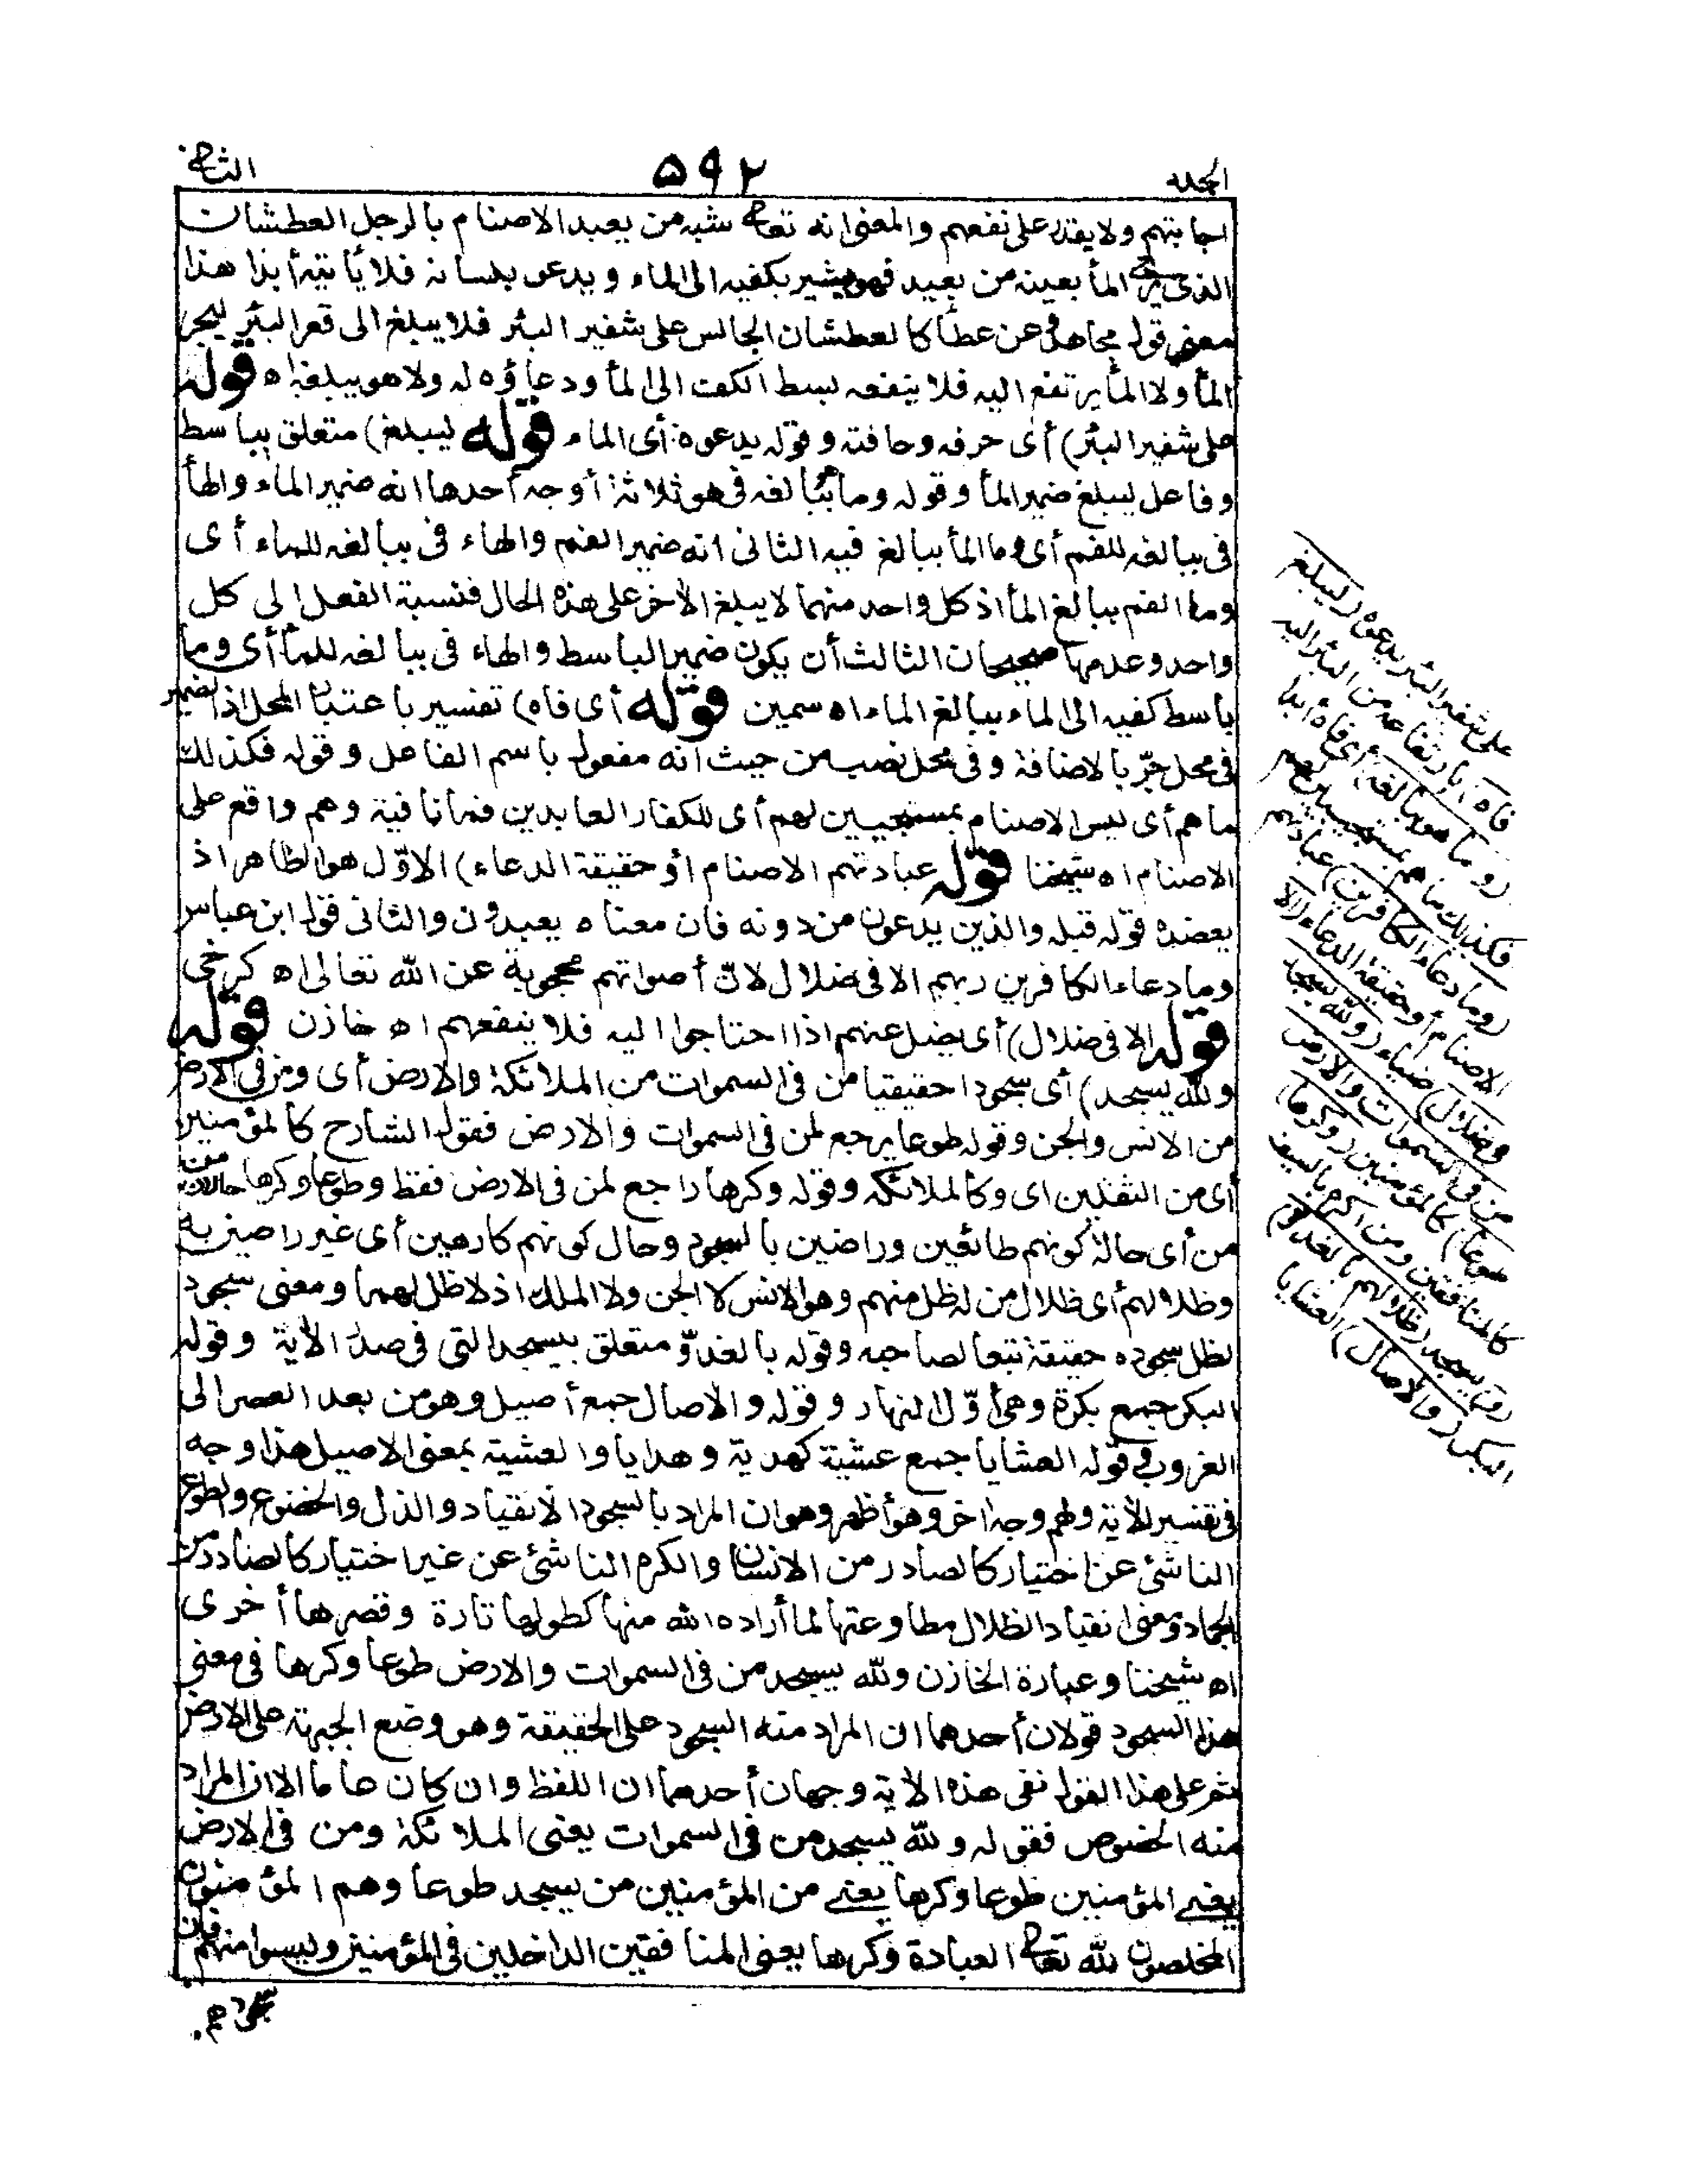 الجلد
۵۹۲
الثانی
اجابتهم ولا يقدر على نفعهم والمعنى انه تعالى شبه من يعبد الاصنام بالرجل العطشان
الذى يرى الماء بعينه من بعيد فهو يشير بكفيه الى الماء ويدعو بلسانه فلا يأتيه أبدا هذا
معنى قول مجاهد وعن عطاء كالعطشان الجالس على شفير البئر فلا يبلغ الى قعر البئر ليخرج
الماء ولا الماء يرتفع اليه فلا ينفعه بسط الكف الى الماء ودعاؤه له ولا هو يبلغه اه قوله
على شفير البئر) أى حرفه وحافته وقوله يدعوه أى الماء قوله ليبلغ) متعلق بباسط
وفاعل ليبلغ ضمير الماء وقوله وما هو ببالغه فى هو ثلاثة أوجه أحدها انه ضمير الماء والهاء
فى ببالغه للفم أى وما الماء ببالغ فيه الثانى انه ضمير الفم والهاء فى ببالغه للماء أى
وما الفم ببالغ الماء اذ كل واحد منهما لا يبلغ الآخر على هذه الحال فنسبة الفعل الى كل
واحد وعدمها صحيحان الثالث أن يكون ضمير الباسط والهاء فى ببالغه للماء أى وما
باسط كفيه الى الماء ببالغ الماء اه سمين قوله أى فاه) تفسير باعتبار المحل اذ الضمير
فى محل جرّ بالاضافة وفى محل نصب من حيث انه مفعول باسم الفاعل وقوله فكذلك
ما هم أى ليس الاصنام بمستجيبين لهم أى للكفار العابدين فما نافية وهم واقع على
الاصنام اه شيخنا قوله عبادتهم الاصنام أو حقيقة الدعاء) الاوّل هو الظاهر اذ
يعضده قوله قبله والذين يدعون من دونه فان معناه يعبدون والثانى قول ابن عباس
وما دعاء الكافرين ربهم الا فى ضلال لان أصواتهم محجوبة عن الله تعالى اه كرخى
قوله الا فى ضلال) أى يضل عنهم اذا احتاجوا اليه فلا ينفعهم اه خازن قوله
ولله يسجد) أى سجودا حقيقيا من فى السموات من الملائكة والارض أى ومن فى الارض
من الانس والجن وقوله طوعا يرجع لمن فى السموات والارض فقول الشارح كالمؤمنين
أى من الثقلين اى وكالملائكة وقوله وكرها راجع لمن فى الارض فقط وطوعا وكرها حالان
من
من أى حالة كونهم طائعين وراضين بالسجود وحال كونهم كارهين أى غير راضين به
وظلالهم أى ظلال من له ظل منهم وهو الانس لا الجن ولا الملك اذ لا ظل لهما ومعنى سجود
الظل سجوده حقيقة تبعا لصاحبه وقوله بالغدوّ متعلق بيسجد التى فى صدر الآية وقوله
البكر جمع بكرة وهى أوّل النهار وقوله والآصال جمع أصيل وهو من بعد العصر الى
الغروب وقوله العشايا جمع عشية كهدية وهدايا والعشية بمعنى الاصيل هذا وجه
فى تفسير الآية ولهم وجه اخر وهو أظهر وهو ان المراد بالسجود الانقياد والذل والخضوع والطوع
الناشئ عن اختيار كالصادر من الانسان والكره الناشئ عن غير اختيار كالصادر من
الجماد ومعنى انقياد الظلال مطاوعتها لما أراده الله منها كطولها تارة وقصرها أخرى
اه شيخنا وعبارة الخازن ولله يسجد من فى السموات والارض طوعا وكرها فى معنى
هذا السجود قولان أحدهما ان المراد منه السجود على الحقيقة وهو وضع الجبهة على الارض
ثم على هذا القول ففى هذه الآية وجهان أحدهما ان اللفظ وان كان عاما الا ان المراد
منه الخصوص فقوله ولله يسجد من فى السموات يعنى الملائكة ومن فى الارض
يعنى المؤمنين طوعا وكرها يعنى من المؤمنين من يسجد طوعا وهم المؤمنون
المخلصون لله تعالى العبادة وكرها يعنى المنافقين الداخلين فى المؤمنين وليسوا منهم فان
سجودهم
على شفير البئر يدعوه (ليبلغ
فاه) بارتفاعه من البئر اليه
(وما هو ببالغه) أى فاه أبدا
فكذلك ما هم بمستجيبين لهم
(وما دعاء الكافرين) عبادتهم
الاصنام أو حقيقة الدعاء (الا
فى ضلال) ضياع (ولله يسجد
من فى السموات والارض
طوعا) كالمؤمنين (وكرها)
كالمنافقين ومن اكره بالسيف
(و) يسجد (ظلالهم بالغدو)
البكر (والآصال) العشايا